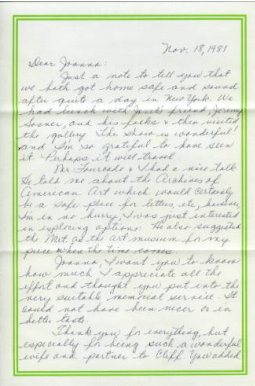 Nov. 18, 1981
Dear Joanna:
Just a note to tell you that
we both got home safe and sound
after quite a day in New York. We
had lunch with friend, Jeremy
and his folks & then visited
the gallery. The show is wonderful!
and I'm so grateful to have seen
it. Perhaps it will travel
Mr. & I had a nice talk
He told me about the Archives of
American Art which would certainly
be a safe place for letters, etc.
I'm in no hurry. I was just interested
in exploring options. He also suggested
the Met as the art museum for my
piece when the time comes.
Joanna, I want you to know
how much I appreciate all the
effort and thought you put into the
very suitable memorial service. It
could not have been nicer or in
better taste.
Thank you for everything, but
especially for being such a wonderful
wife and partner to Cliff. You added